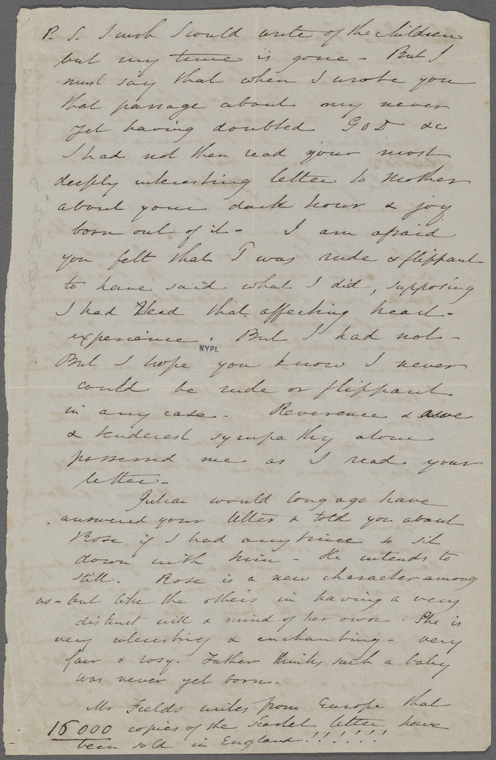 P. S. I wish I could write of the children
but my time is gone - But I
must say that when I wrote you
that passage about my never
yet having doubted GOD &c
I had not then read your most
deeply interesting letter to Mother
about your dark hour & joy
born out of it - I am afraid
you felt that I was rude & flippant
to have said what I did, supposing
I had read that affecting heart-
experience. But I had not -
NYPL
But I hope you know I never
could be rude or flippant
in any case - Reverence & awe
& tenderest sympathy alone
possessed me as I read your
letter -
Julian would long ago have
answered your letter & told you about
Rose if I had any time to sit
down with him - He intends to
still. Rose is a new character among
us - but like the others in having a very
distinct will & mind of her own. She is
very interesting & enchanting - very
fair & rosy. Father thinks such a baby
was never yet born.
Mr Fields writes from Europe that
16000 copies of the Scarlet letter have
been sold in England!!!!!!